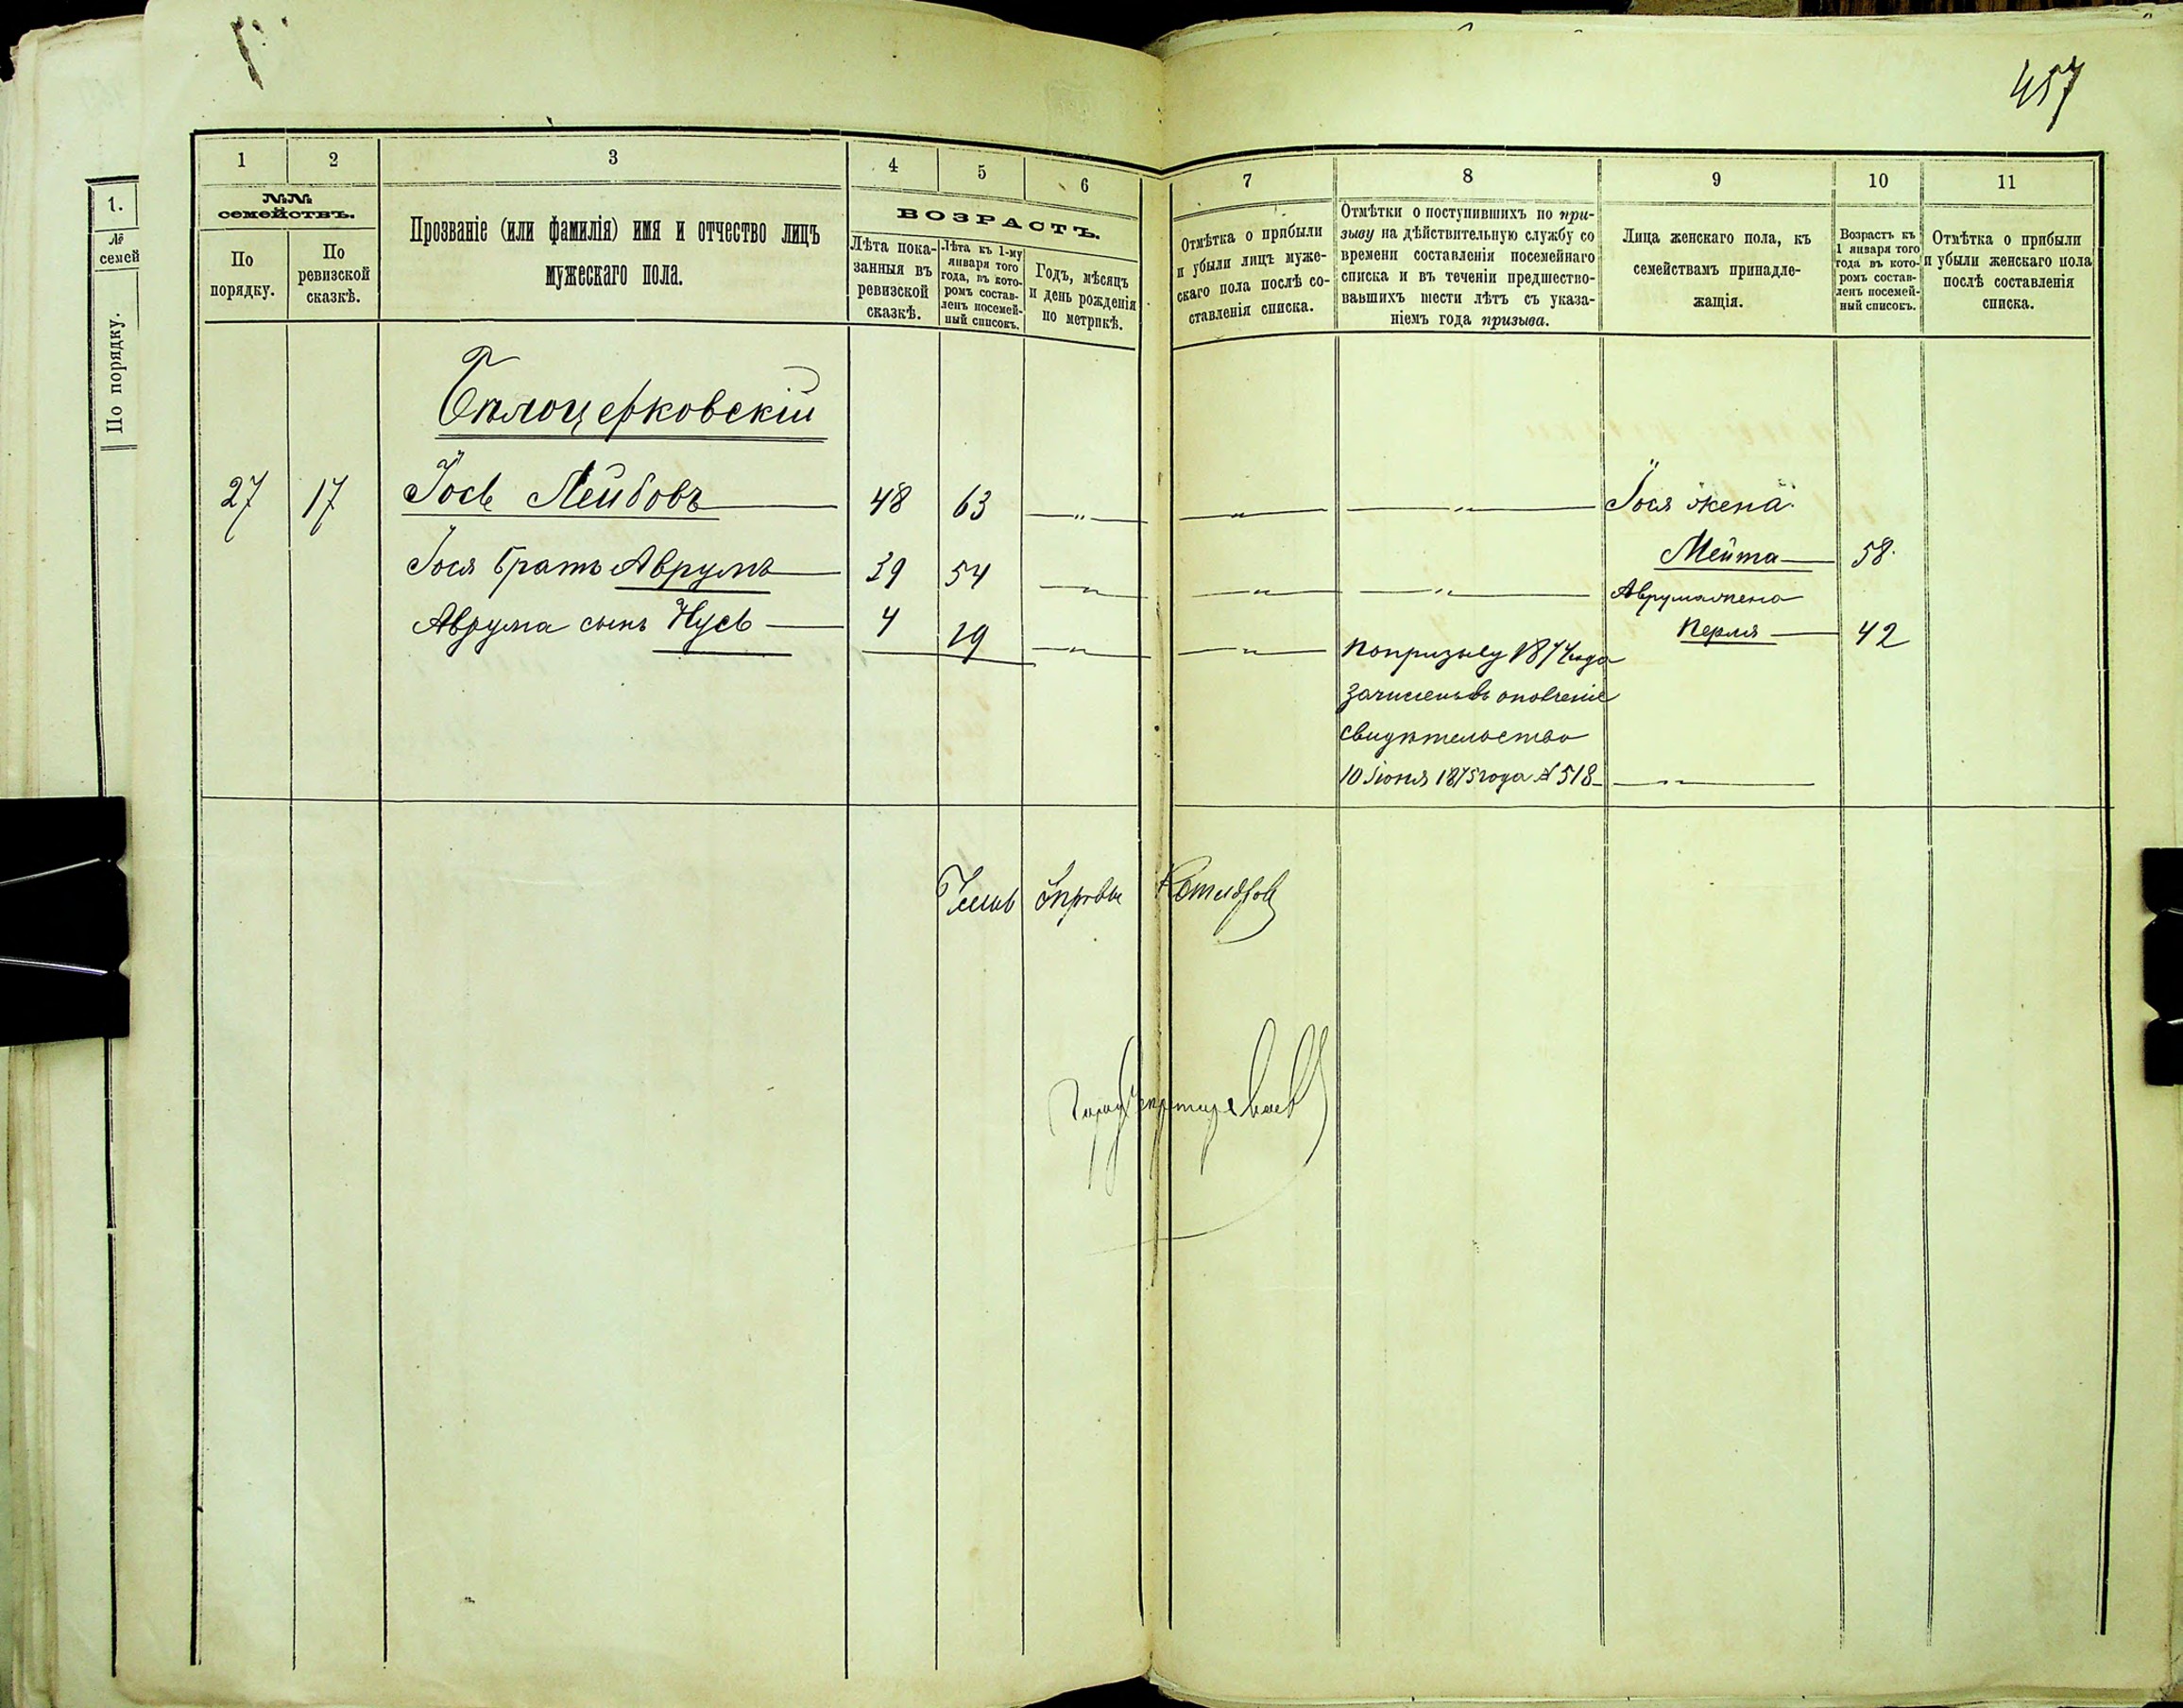 457
1.
№
семей
По порядку.
1 2 3 4 5 6 7 8 9 10 11
№№
семействъ.
По
порядку.
По
ревизской
сказкѣ.
Прозваніе (или фамилія) имя и отчество лицъ
мужескаго пола.
ВОЗРАСТЪ.
Лѣта пока-
занныя въ
ревизской
сказкѣ.
Лѣта къ 1-му
января того
года, въ кото-
ромъ состав-
ленъ посемей-
ный списокъ.
Годъ, мѣсяцъ
и день рожденія
по метрикѣ.
Отмѣтка о прибыли
и убыли лицъ муже-
скаго пола послѣ со-
ставленія списка.
Отмѣтки о поступившихъ по при-
зыву на дѣйствительную службу со
времени составленія посемейнаго
списка и въ теченіи предшество-
вавшихъ шести лѣтъ съ указа-
ніемъ года призыва.
Лица женскаго пола, къ
семействамъ принадле-
жащія.
Возрастъ къ
1 января того
года въ кото-
ромъ состав-
ленъ посемей-
ный списокъ.
Отмѣтка о прибыли
и убыли женскаго пола
послѣ составленія
списка.
Бѣлоцерковскій
27 17 Іось Лейбовъ — 48 63 —〃— —〃— —〃— Іося жена
Мейта — 58.
Іося братъ Аврумъ — 39 54 —〃— —〃— —〃— Аврума жена
Перля — 42
Аврума сынъ Нусь — 4 19 —〃— —〃— По призыву 1874 года
зачисленъ въ ополченіе
свидѣтельство
10 Іюня 1875 года № 518 —〃—
Членъ Управы